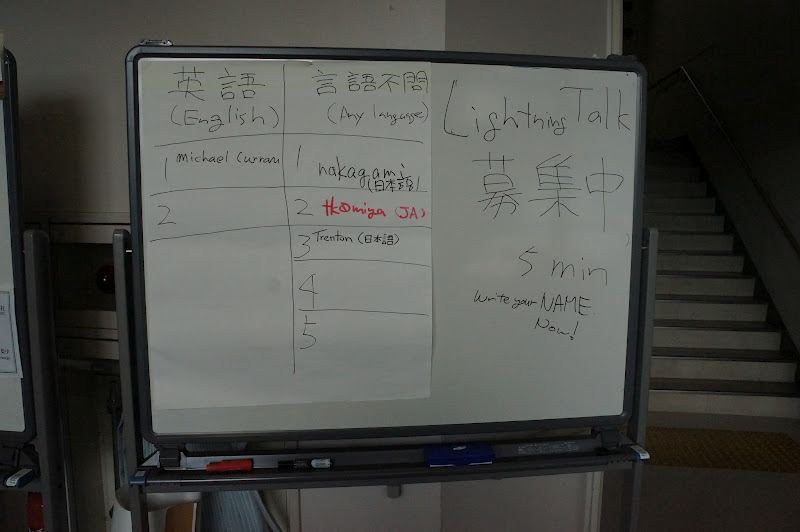 英語
(English)
1 Michael Curran
2
言語不問
(Any language)
1 nakagami
(日本語)
2 tkomiya (JA)
3 Trenton (日本語)
4
5
Lightning Talk
募集中
5 min
Write your NAME.
Now!